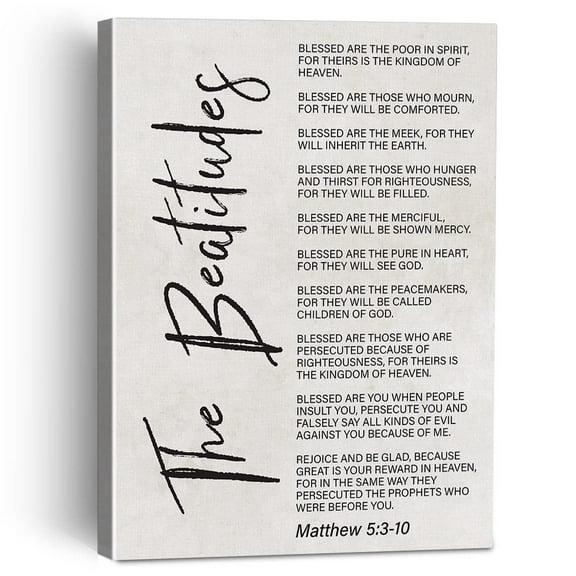 The Beatitudes
BLESSED ARE THE POOR IN SPIRIT,
FOR THEIRS IS THE KINGDOM OF
HEAVEN.
BLESSED ARE THOSE WHO MOURN,
FOR THEY WILL BE COMFORTED.
BLESSED ARE THE MEEK, FOR THEY
WILL INHERIT THE EARTH.
BLESSED ARE THOSE WHO HUNGER
AND THIRST FOR RIGHTEOUSNESS,
FOR THEY WILL BE FILLED.
BLESSED ARE THE MERCIFUL,
FOR THEY WILL BE SHOWN MERCY.
BLESSED ARE THE PURE IN HEART,
FOR THEY WILL SEE GOD.
BLESSED ARE THE PEACEMAKERS,
FOR THEY WILL BE CALLED
CHILDREN OF GOD.
BLESSED ARE THOSE WHO ARE
PERSECUTED BECAUSE OF
RIGHTEOUSNESS, FOR THEIRS IS
THE KINGDOM OF HEAVEN.
BLESSED ARE YOU WHEN PEOPLE
INSULT YOU, PERSECUTE YOU AND
FALSELY SAY ALL KINDS OF EVIL
AGAINST YOU BECAUSE OF ME.
REJOICE AND BE GLAD, BECAUSE
GREAT IS YOUR REWARD IN HEAVEN,
FOR IN THE SAME WAY THEY
PERSECUTED THE PROPHETS WHO
WERE BEFORE YOU.
Matthew 5:3-10